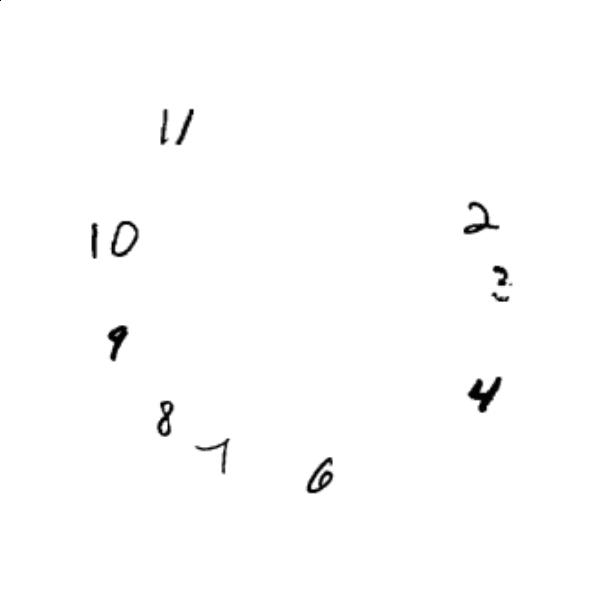 11
2
10
3
9
4
8
7
6